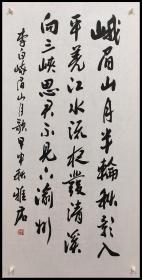 峨眉山月半轮秋影入
平羌江水流夜发清溪
向三峡思君不见下渝州
李白峨眉山月歌甲申秋雅石